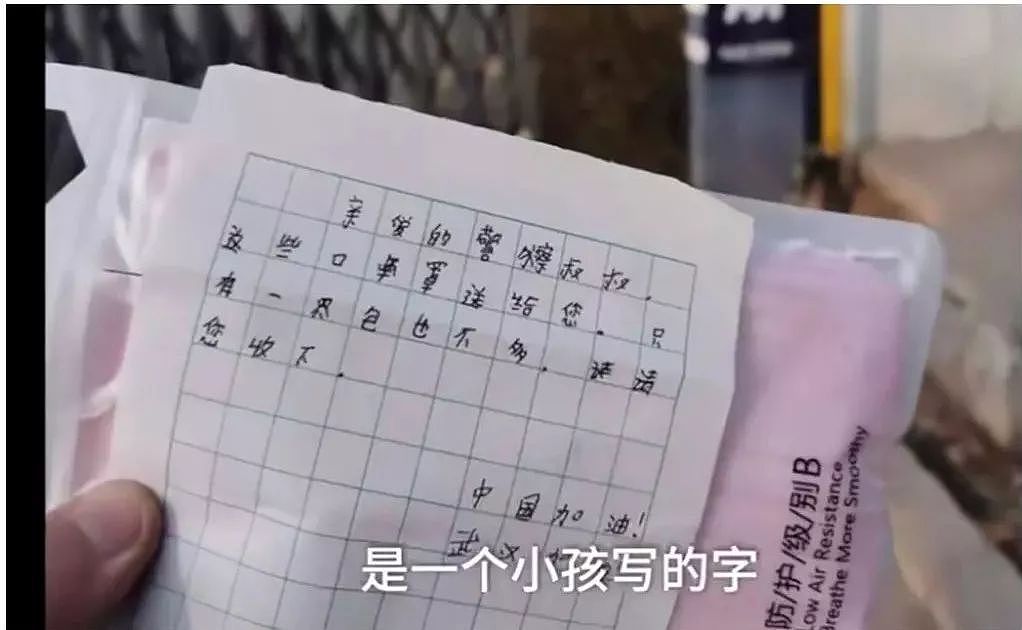 亲爱的警嚓叔叔，
这些口罩送给您。只
有一包也不多。请
您收下.
中国加油!
武汉
是一个小孩写的字
防/护/级/别B
Low Air Resistance
Breathe More Smoothy